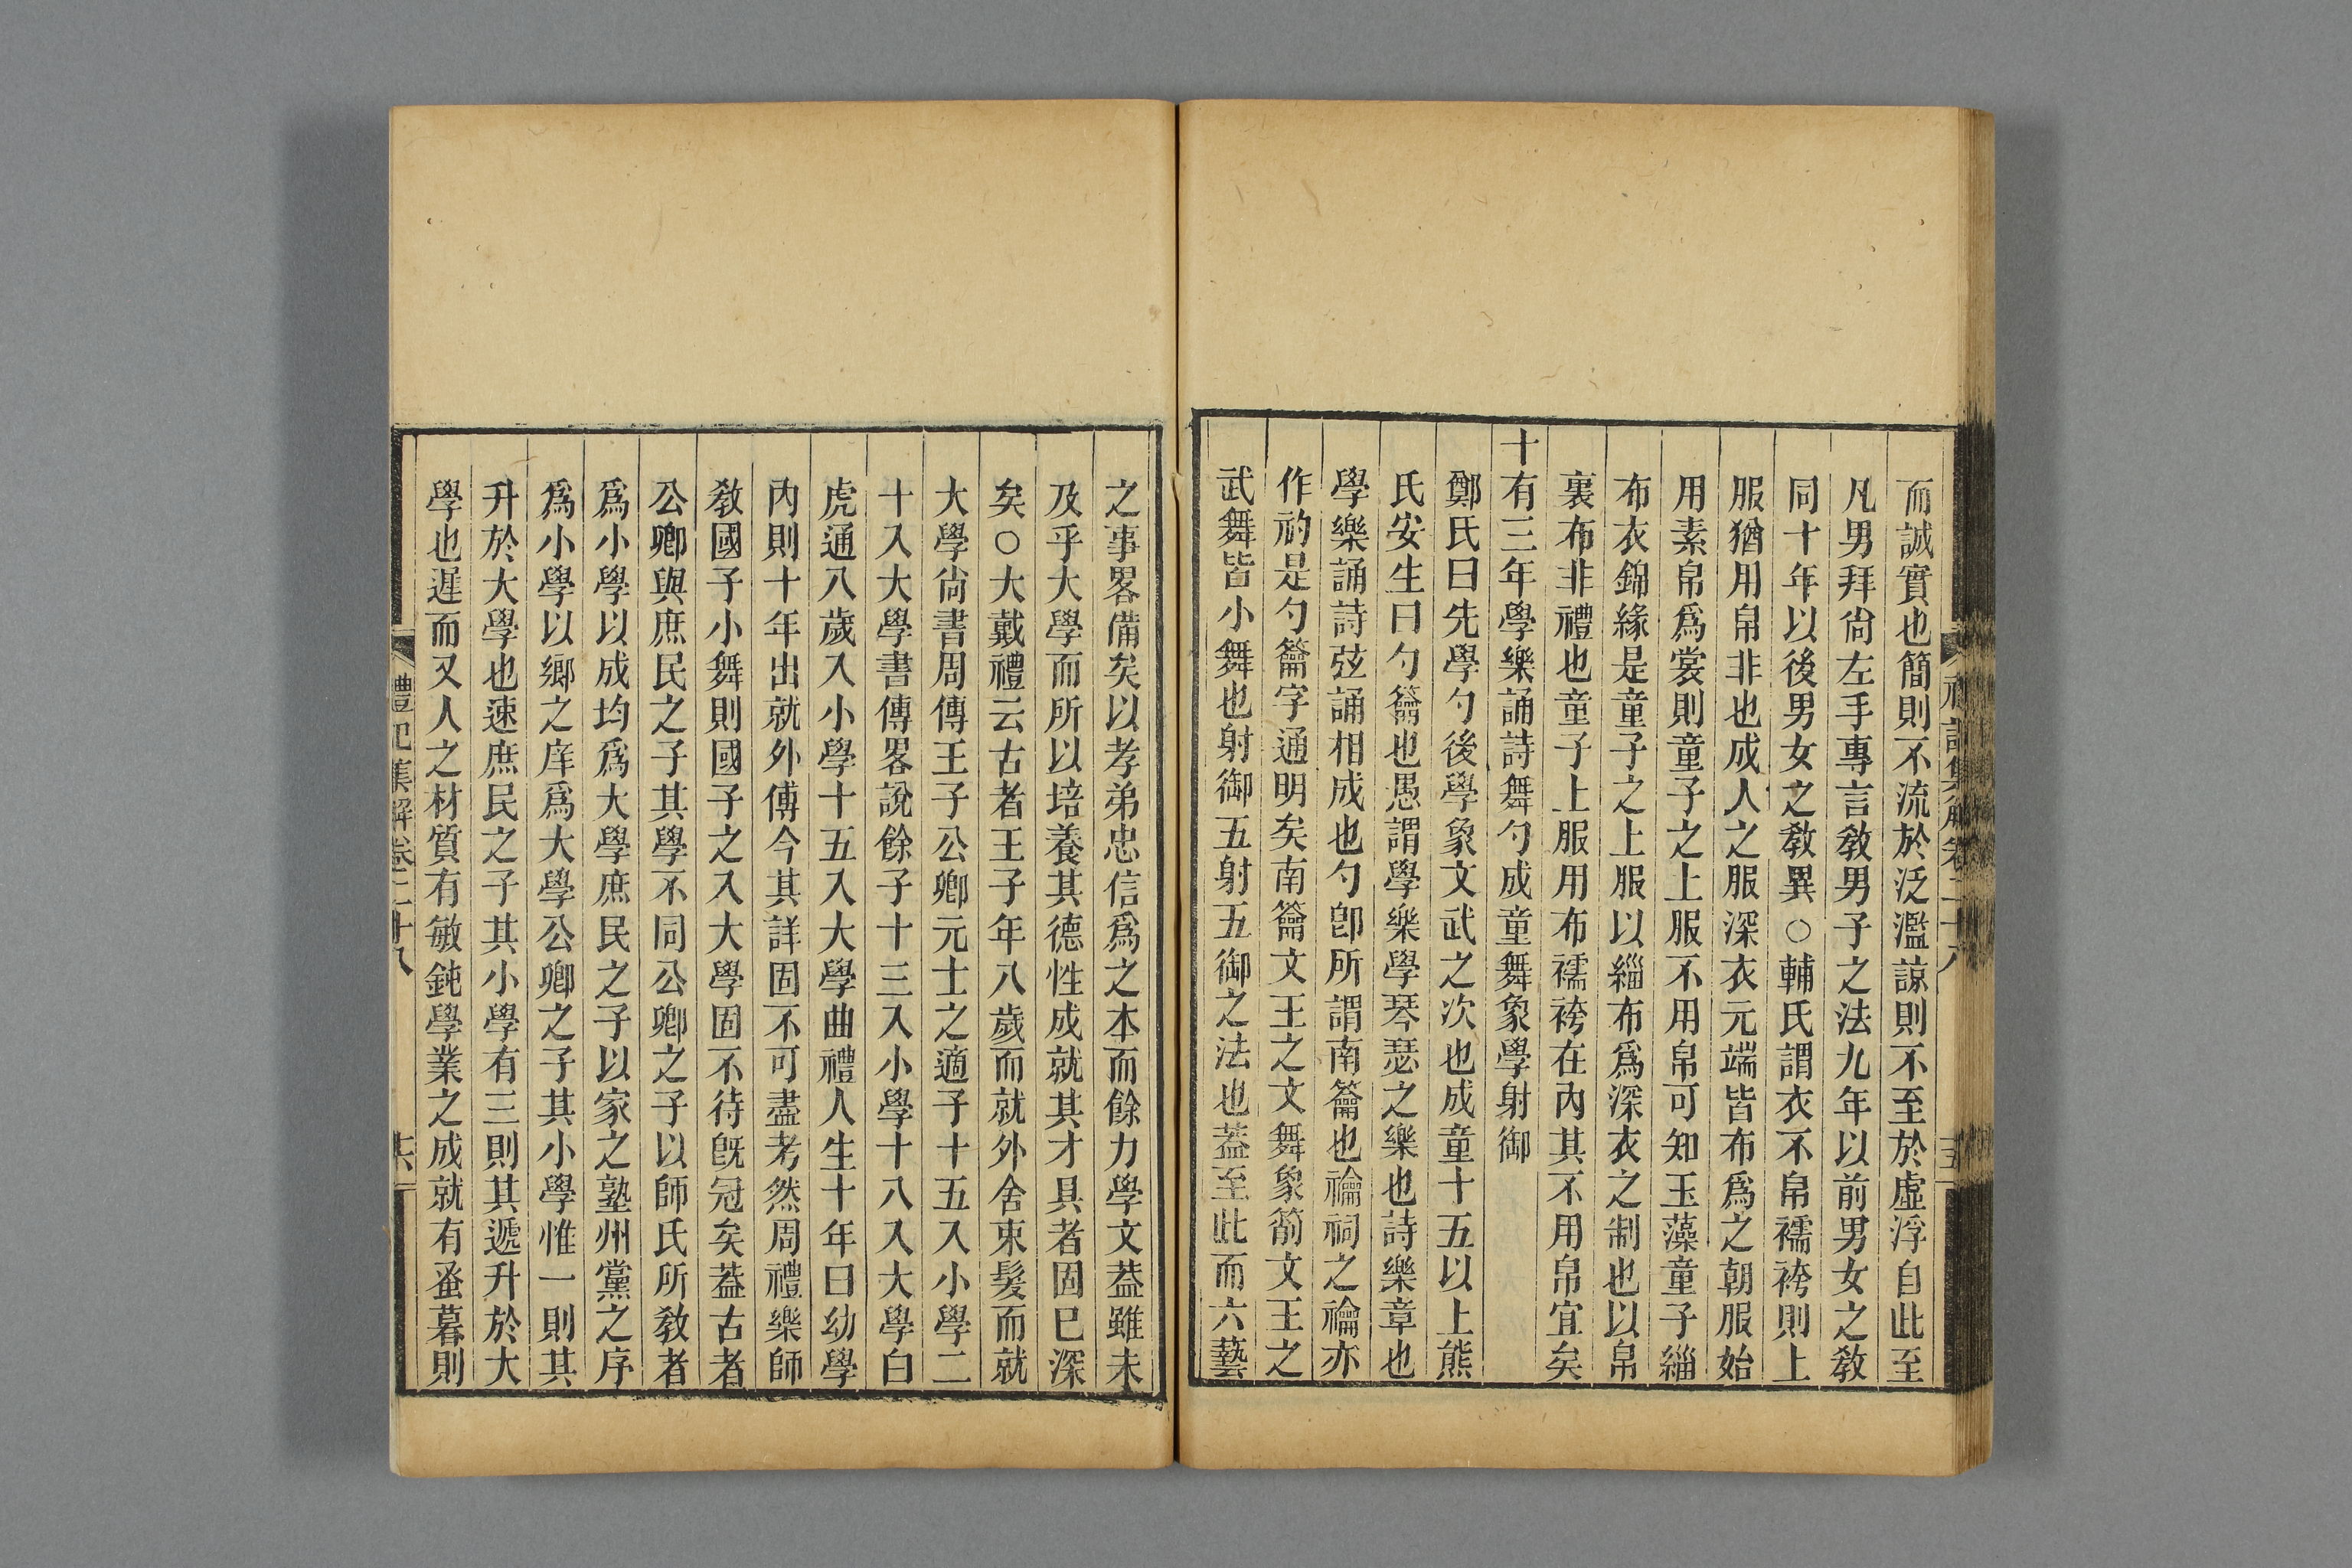 而誠實也簡則不流於泛濫諒則不至於虛浮自此至
凡男拜尙左手專言敎男子之法九年以前男女之敎
同十年以後男女之敎異○輔氏謂衣不帛襦袴則上
服猶用帛非也成人之服深衣元端皆布爲之朝服始
用素帛爲裳則童子之上服不用帛可知玉藻童子緇
布衣錦緣是童子之上服以緇布爲深衣之制也以帛
裏布非禮也童子上服用布襦袴在內其不用帛宜矣
十有三年學樂誦詩舞勺成童舞象學射御
鄭氏曰先學勺後學象文武之次也成童十五以上熊
氏安生曰勺籥也愚謂學樂學琴瑟之樂也詩樂章也
學樂誦詩弦誦相成也勺卽所謂南籥也禴祠之禴亦
作礿是勺籥字通明矣南籥文王之文舞象箾文王之
武舞皆小舞也射御五射五御之法也葢至此而六藝
之事畧備矣以孝弟忠信爲之本而餘力學文葢雖未
及乎大學而所以培養其德性成就其才具者固已深
矣○大戴禮云古者王子年八歲而就外舍束髮而就
大學尙書周傳王子公卿元士之適子十五入小學二
十入大學書傳畧說餘子十三入小學十八入大學白
虎通八歲入小學十五入大學曲禮人生十年曰幼學
內則十年出就外傅今其詳固不可盡考然周禮樂師
敎國子小舞則國子之入大學固不待旣冠矣葢古者
公卿與庶民之子其學不同公卿之子以師氏所敎者
爲小學以成均爲大學庶民之子以家之塾州黨之序
爲小學以鄉之庠爲大學公卿之子其小學惟一則其
升於大學也速庶民之子其小學有三則其遞升於大
學也遲而又人之材質有敏鈍學業之成就有蚤暮則
禮記集解卷二十八
共